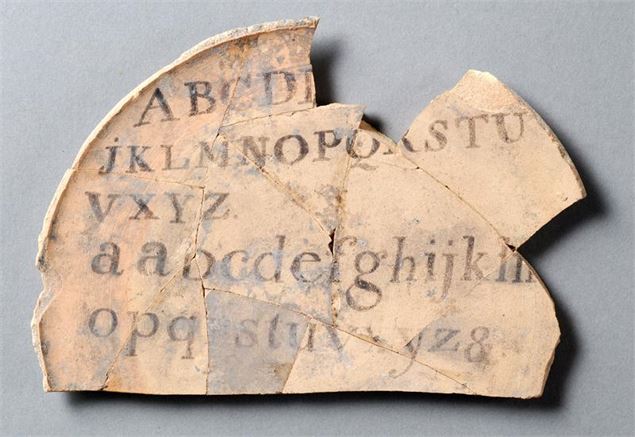 ABCD
JKLMNOPQRSTU
VXYZ
aabcdefghijklm
opq stuv yz&